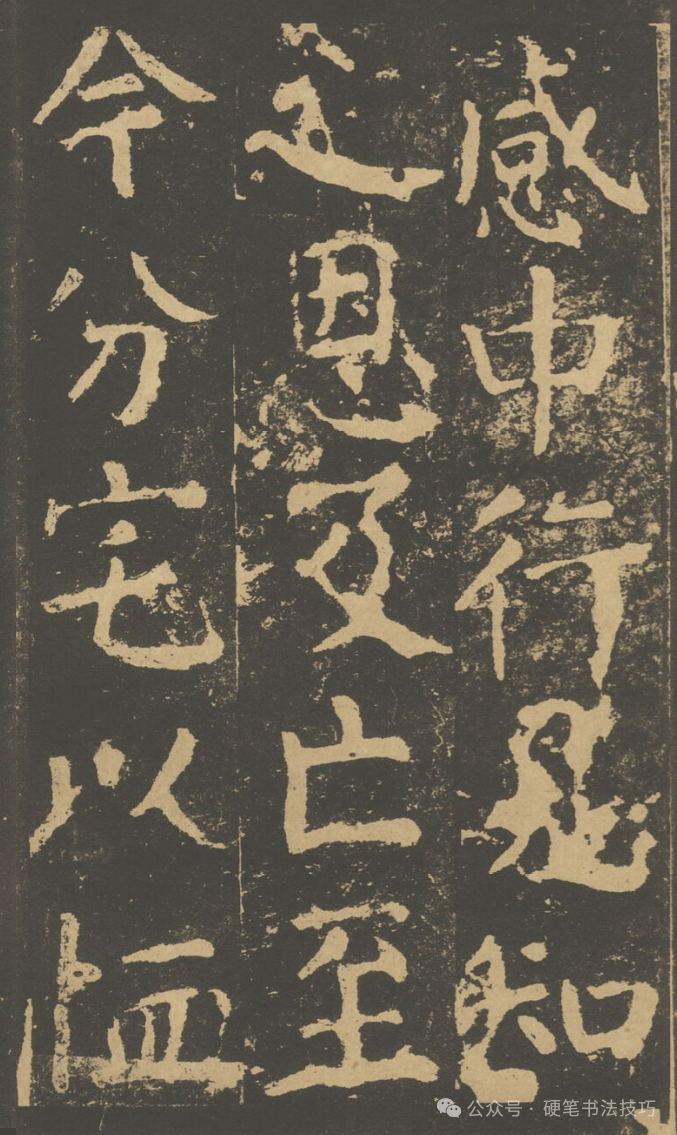 感中行是知
之恩及亡至
今分宅以恤
公众号 · 硬笔书法技巧